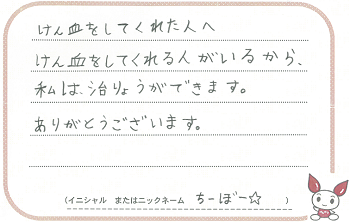 けん血をしてくれた人へ
けん血をしてくれる人がいるから、
私は、治りょうができます。
ありがとうございます。
(イニシャル またはニックネーム ちーぼー☆ )